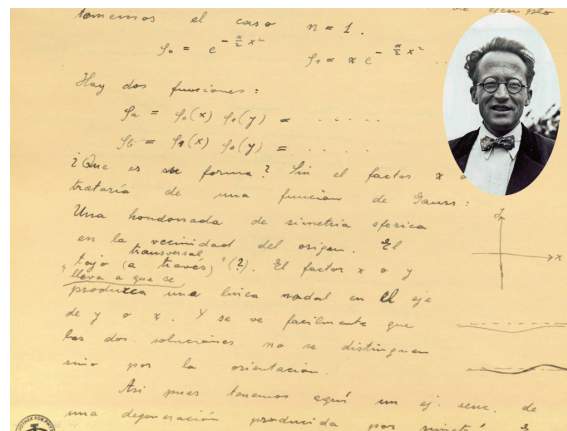 de ejemplo
tomemos el caso n = 1.
φ₀ = e^{-α/2 x²} φ₁ = x e^{-α/2 x²} ..
Hay dos funciones:
φa = φ₀(x) φ₁(y) = . . . . .
φb = φ₁(x) φ₀(y) = . . . . .
¿Que es su forma? Sin el factor x o
trataría de una funcion de Gauss:
Una hondonada de simetria sferica
en la vecinidad del origen. El
transversal
tajo (a través) "(2). El factor x o y
lleva a que se
produzca una linea nodal en el eje
de y o x. Y se ve facilmente que
las dos soluciones no se distinguen
sino por la orientacion.
Asi pues tenemos aquí un ej. senc. de
una degeneración producida por simetr
x